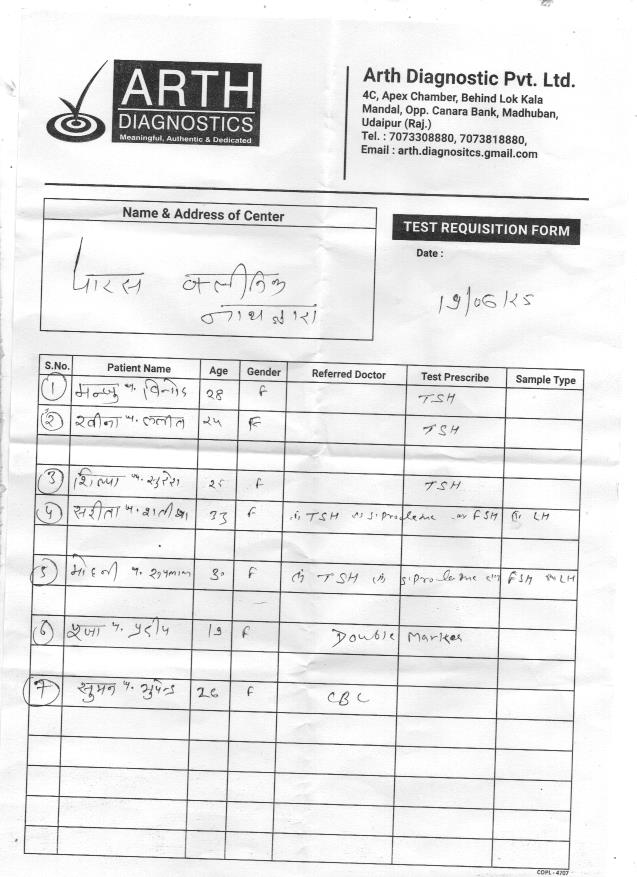 ARTH
DIAGNOSTICS
Meaningful, Authentic & Dedicated
Arth Diagnostic Pvt. Ltd.
4C, Apex Chamber, Behind Lok Kala
Mandal, Opp. Canara Bank, Madhuban,
Udaipur (Raj.)
Tel. : 7073308880, 7073818880,
Email : arth.diagnositcs.gmail.com
Name & Address of Center
पारस क्लीनिक
नाथद्वारा
TEST REQUISITION FORM
Date :
19/06/25
S.No. Patient Name Age Gender Referred Doctor Test Prescribe Sample Type
1 मन्जु प. विनोद 28 F TSH
2 रवीना प. ललीत 25 F TSH
3 शिल्पा प. सुरेश 25 F TSH
4 सरीता प. 33 F TSH S. Prolactine FSH LH
5 मोहनी प. 30 F TSH S. Prolactine FSH LH
6 पूजा प. प्रदीप 19 F Double Marker
7 सुमन प. भुपेन्द्र 26 F CBC
CDPL - 4707